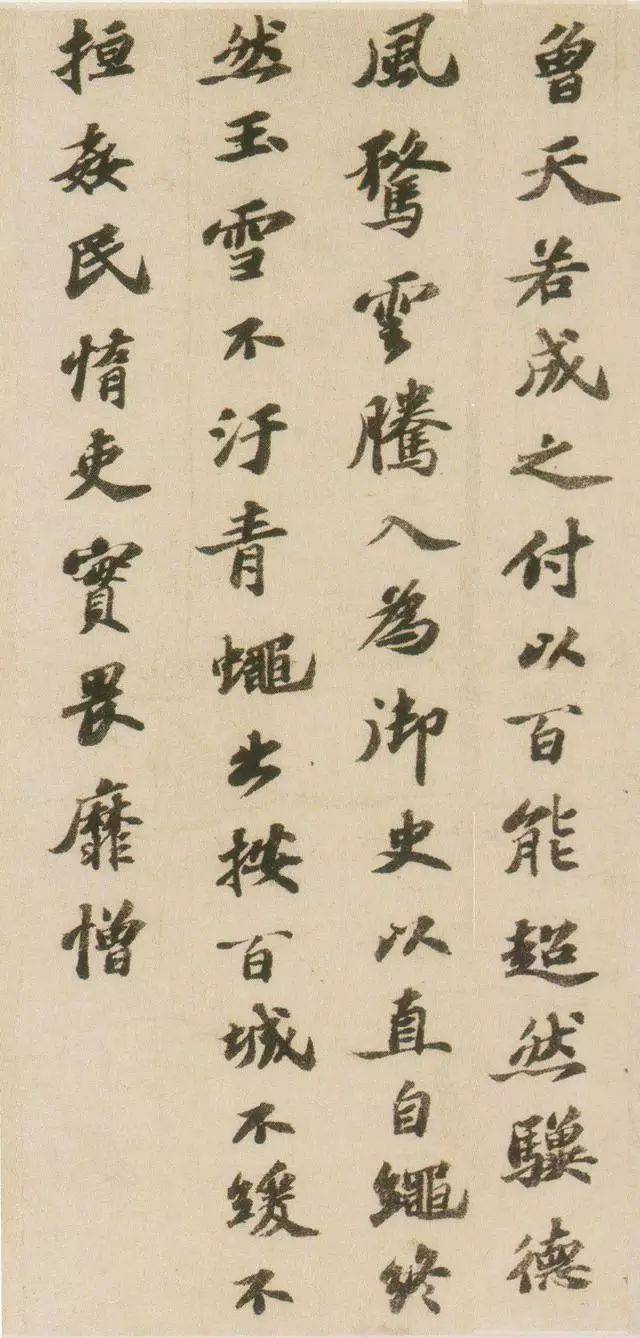 曾天若成之付以百能超然驥德
風騖雲騰入為御史以直自繩終
然玉雪不汙青蠅出按百城不緩不
搄姦民惰吏實畏靡憎